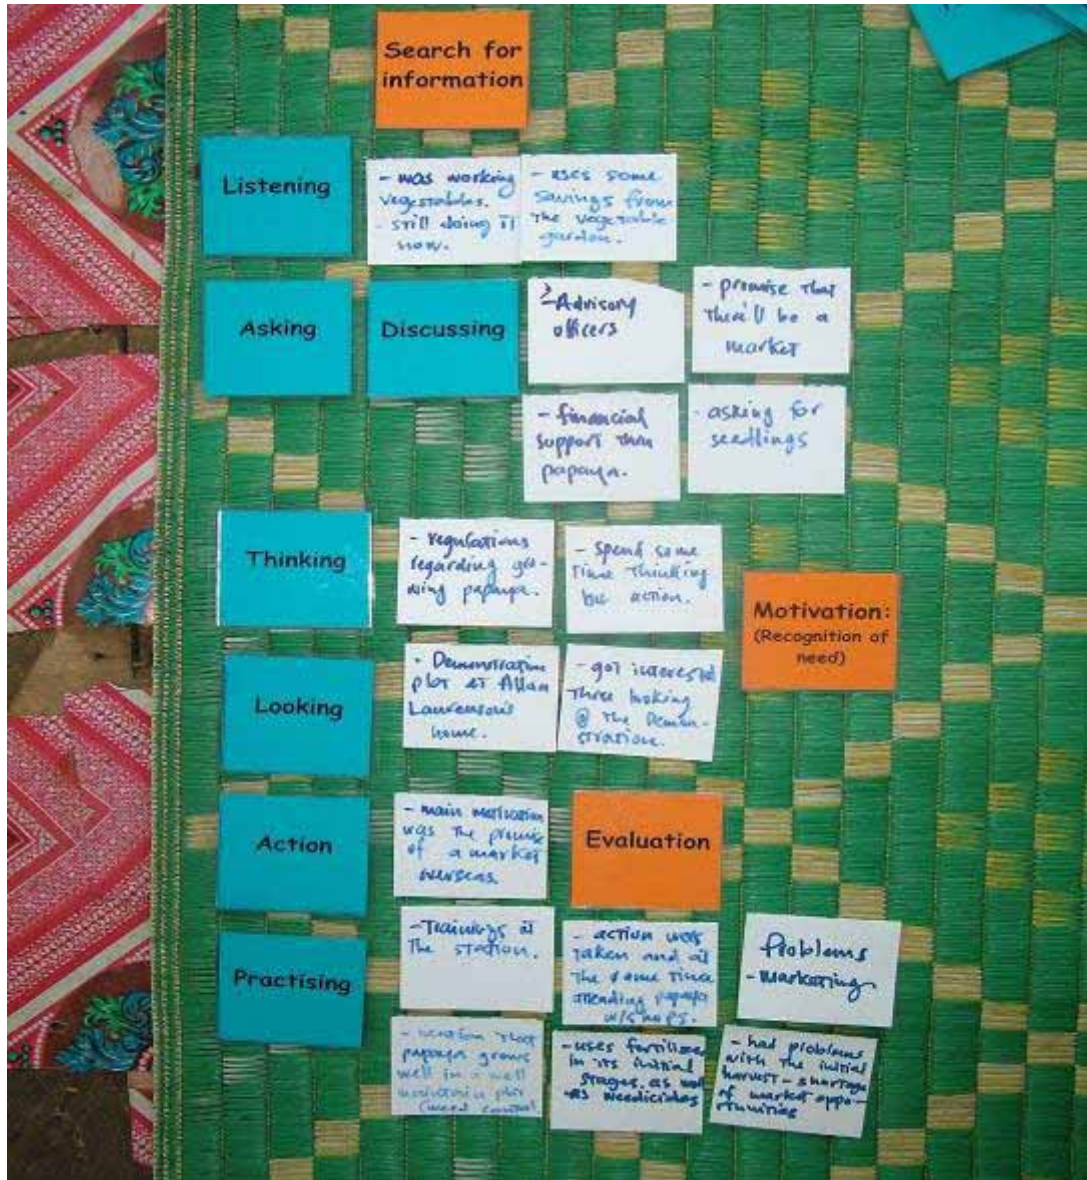 Search for
information
Listening
- was working
vegetables.
- still doing it
now.
- uses some
savings from
the vegetable
garden.
Asking
Discussing
- Advisory
officers
- promise that
there'll be a
market
- financial
support thru
papaya.
- asking for
seedlings
Thinking
- regulations
regarding gro-
wing papaya.
- spend some
time thinking
b4 action.
Motivation:
(Recognition of
need)
Looking
- Demonstration
plot at Allan
home.
- got interested
three looking
@ the Demon-
stration.
Action
- main motivation
was the promise
of a market
overseas.
Evaluation
Practising
- Trainings at
the station.
- action was
taken and at
the same time
attending papaya
w/shops.
Problems
- marketing
that
papaya grows
well in a well
plot
(weed control
- uses fertilizer
in its initial
stages, as well
as weedicides
- had problems
with the initial
harvest - shortage
of market oppo-
rtunities